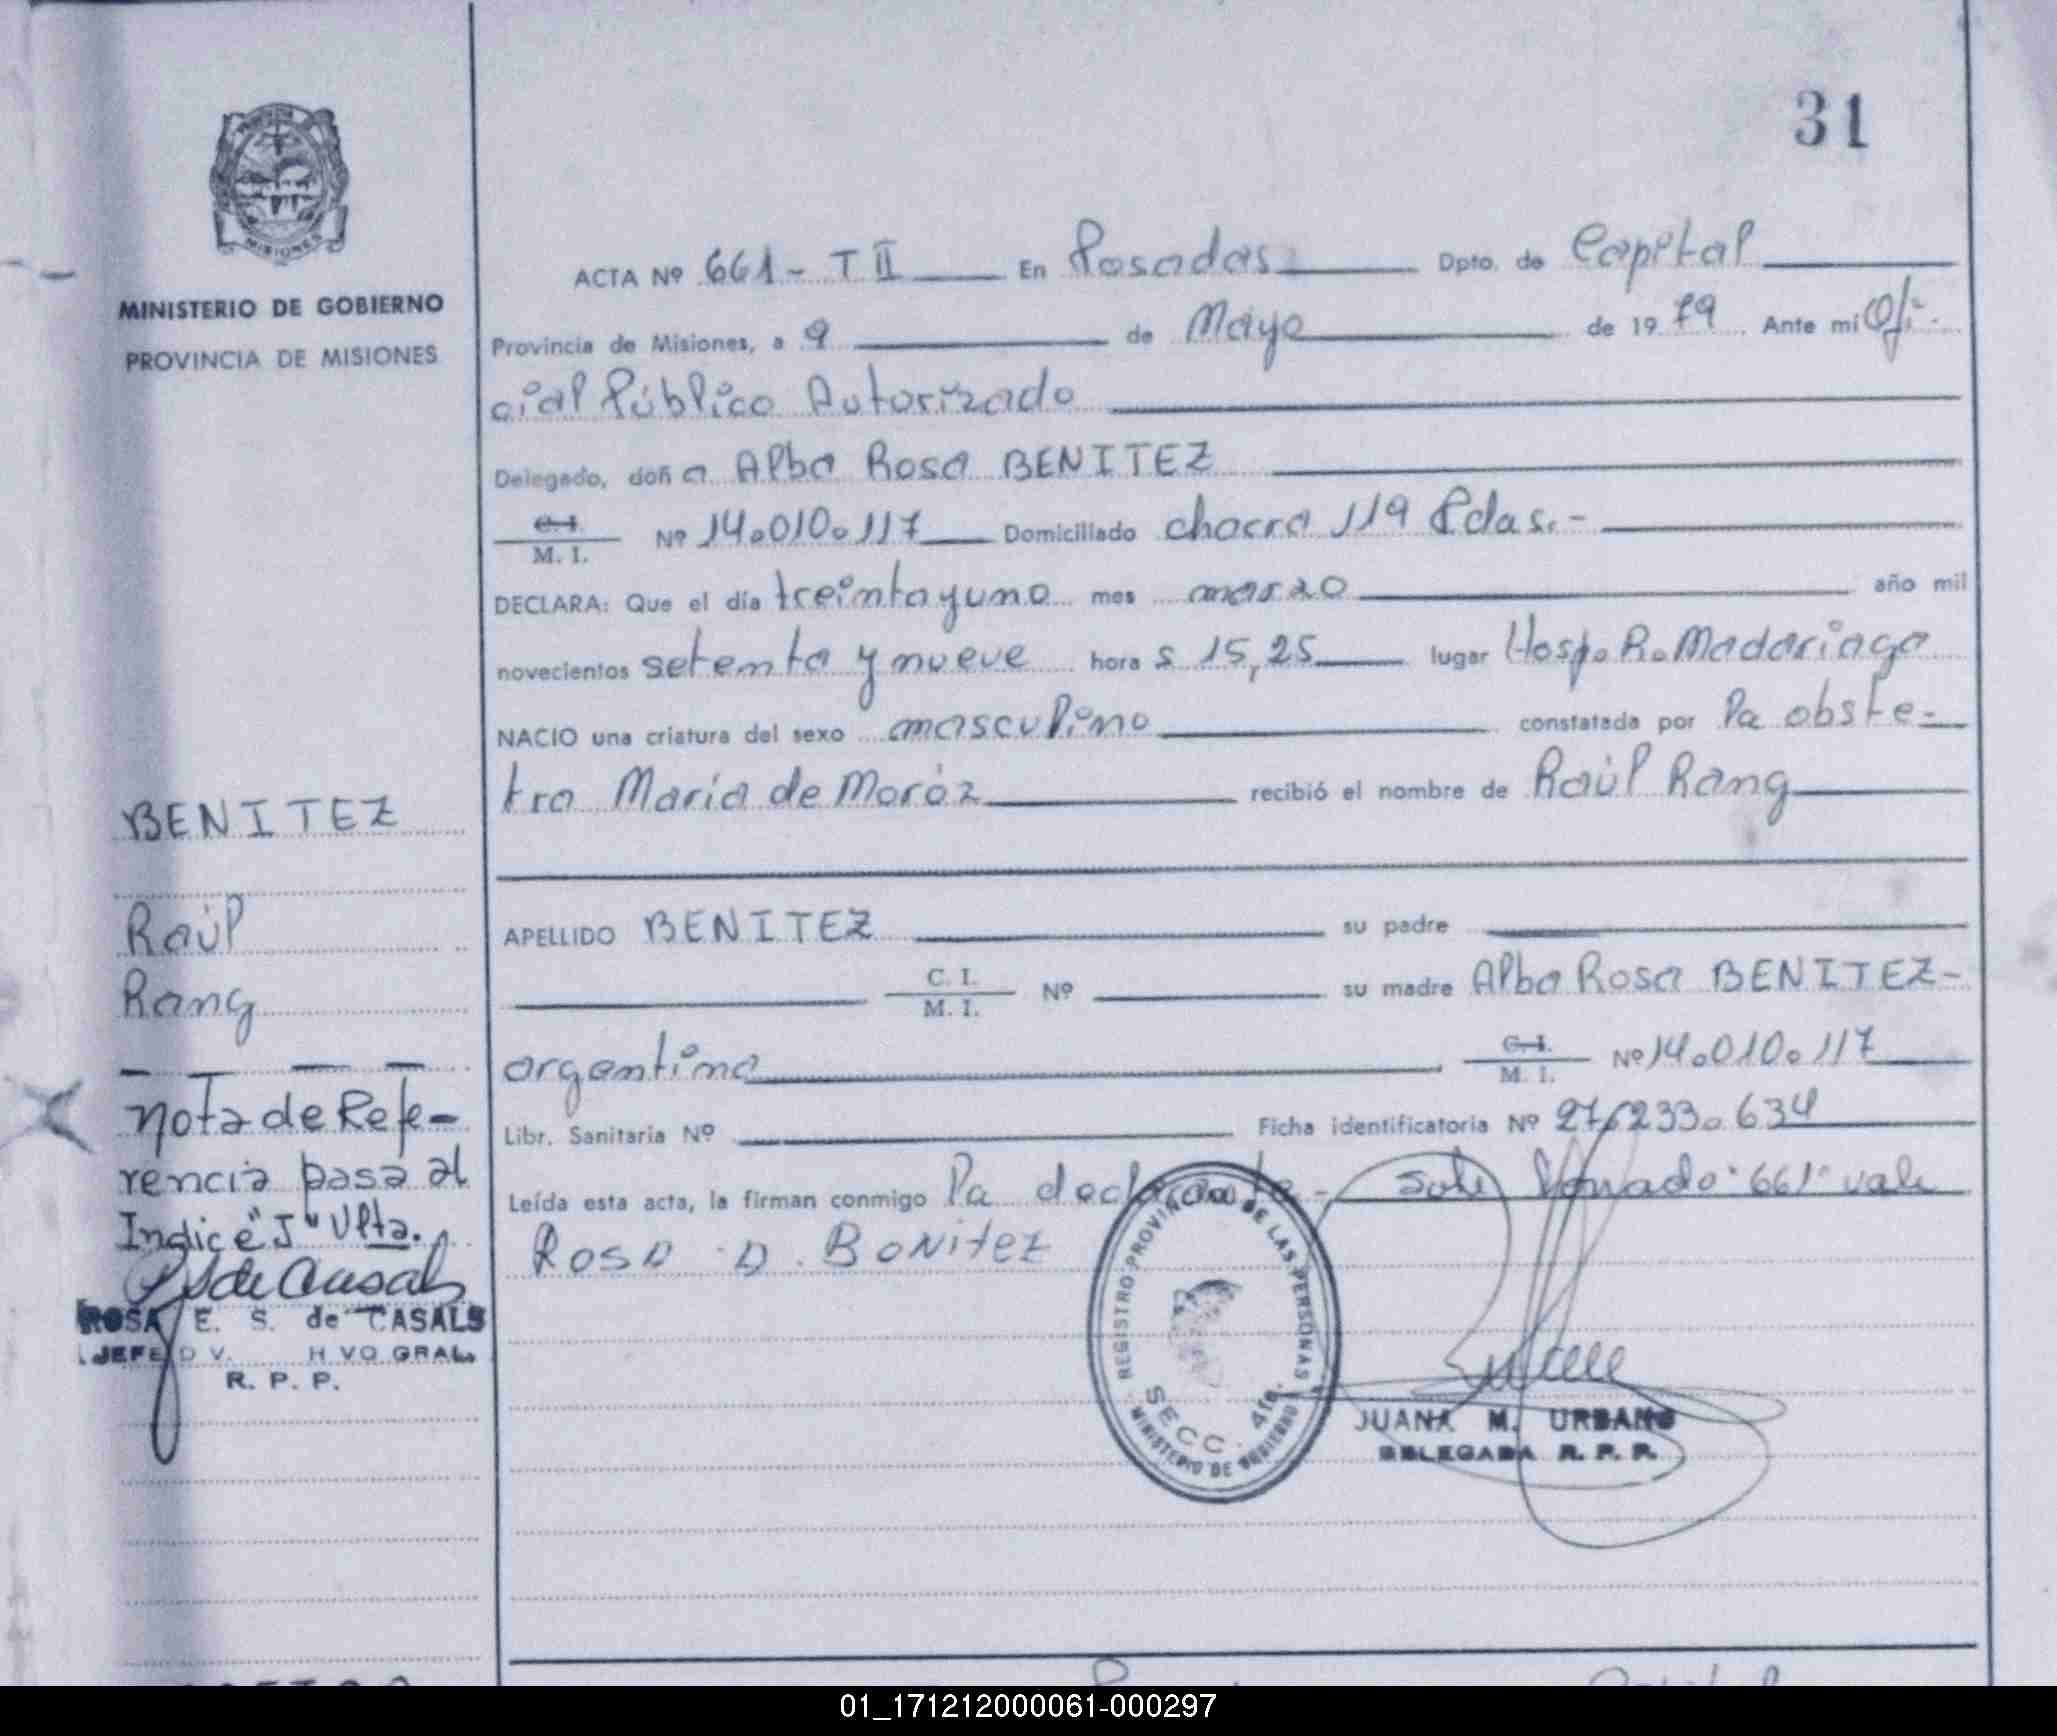 31
MISIONES
MINISTERIO DE GOBIERNO
PROVINCIA DE MISIONES
ACTA Nº 661 - T II En Posadas Dpto. de Capital
Provincia de Misiones, a 9 de Mayo de 19 79 Ante mi Ofi-
cial Público Autorizado
Delegado, doñ a Alba Rosa BENITEZ
C. I.
M. I. Nº 14.010.117 Domiciliado chacra 119 Pdas.-
DECLARA: Que el día treintayuno mes marzo año mil
novecientos setenta y nueve hora s 15,25 lugar Hosp. R. Madariaga
NACIO una criatura del sexo masculino constatada por la obste-
tra María de Moróz recibió el nombre de Raúl Rang
APELLIDO BENITEZ su padre
C. I.
M. I. Nº su madre Alba Rosa BENITEZ-
argentina C. I.
M. I. Nº 14.010.117
Libr. Sanitaria Nº Ficha identificatoria Nº 27.233.634
Leída esta acta, la firman conmigo la declarante - vale
ROSA A. BONiteZ
REGISTRO PROVINCIAL DE LAS PERSONAS
SECC. 4ta.
MINISTERIO DE GOBIERNO
JUANA M. URBANO
DELEGADA R. P. P.
BENITEZ
Raúl
Rang
Nota de Refe-
rencia pasa al
Indice "J" Ulta.
ROSA E. S. de CASALS
JEFE D V. H VO GRAL.
R. P. P.
01_171212000061-000297